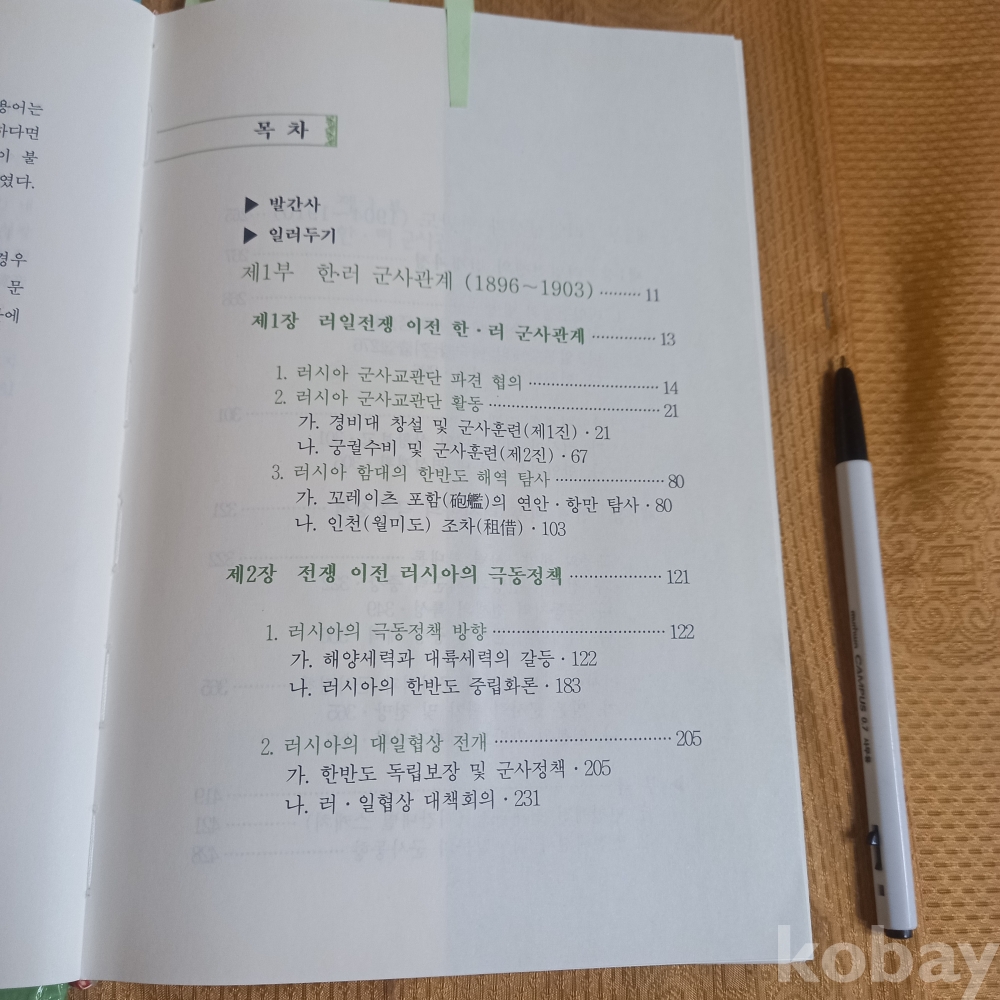 용어는
하다면
이 불
였다.
경우
문
에
목 차
▶ 발간사
▶ 일러두기
제1부 한·러 군사관계 (1896～1903) ········· 11
제1장 러일전쟁 이전 한·러 군사관계 ·············· 13
1. 러시아 군사교관단 파견 협의 ···························· 14
2. 러시아 군사교관단 활동 ····································· 21
가. 경비대 창설 및 군사훈련(제1진) · 21
나. 궁궐수비 및 군사훈련(제2진) · 67
3. 러시아 함대의 한반도 해역 탐사 ························ 80
가. 꼬레이츠 포함(砲艦)의 연안·항만 탐사 · 80
나. 인천(월미도) 조차(租借) · 103
제2장 전쟁 이전 러시아의 극동정책 ···················· 121
1. 러시아의 극동정책 방향 ····································· 122
가. 해양세력과 대륙세력의 갈등 · 122
나. 러시아의 한반도 중립화론 · 183
2. 러시아의 대일협상 전개 ····································· 205
가. 한반도 독립보장 및 군사정책 · 205
나. 러·일협상 대책회의 · 231
CAMPUS 0.7
kobay